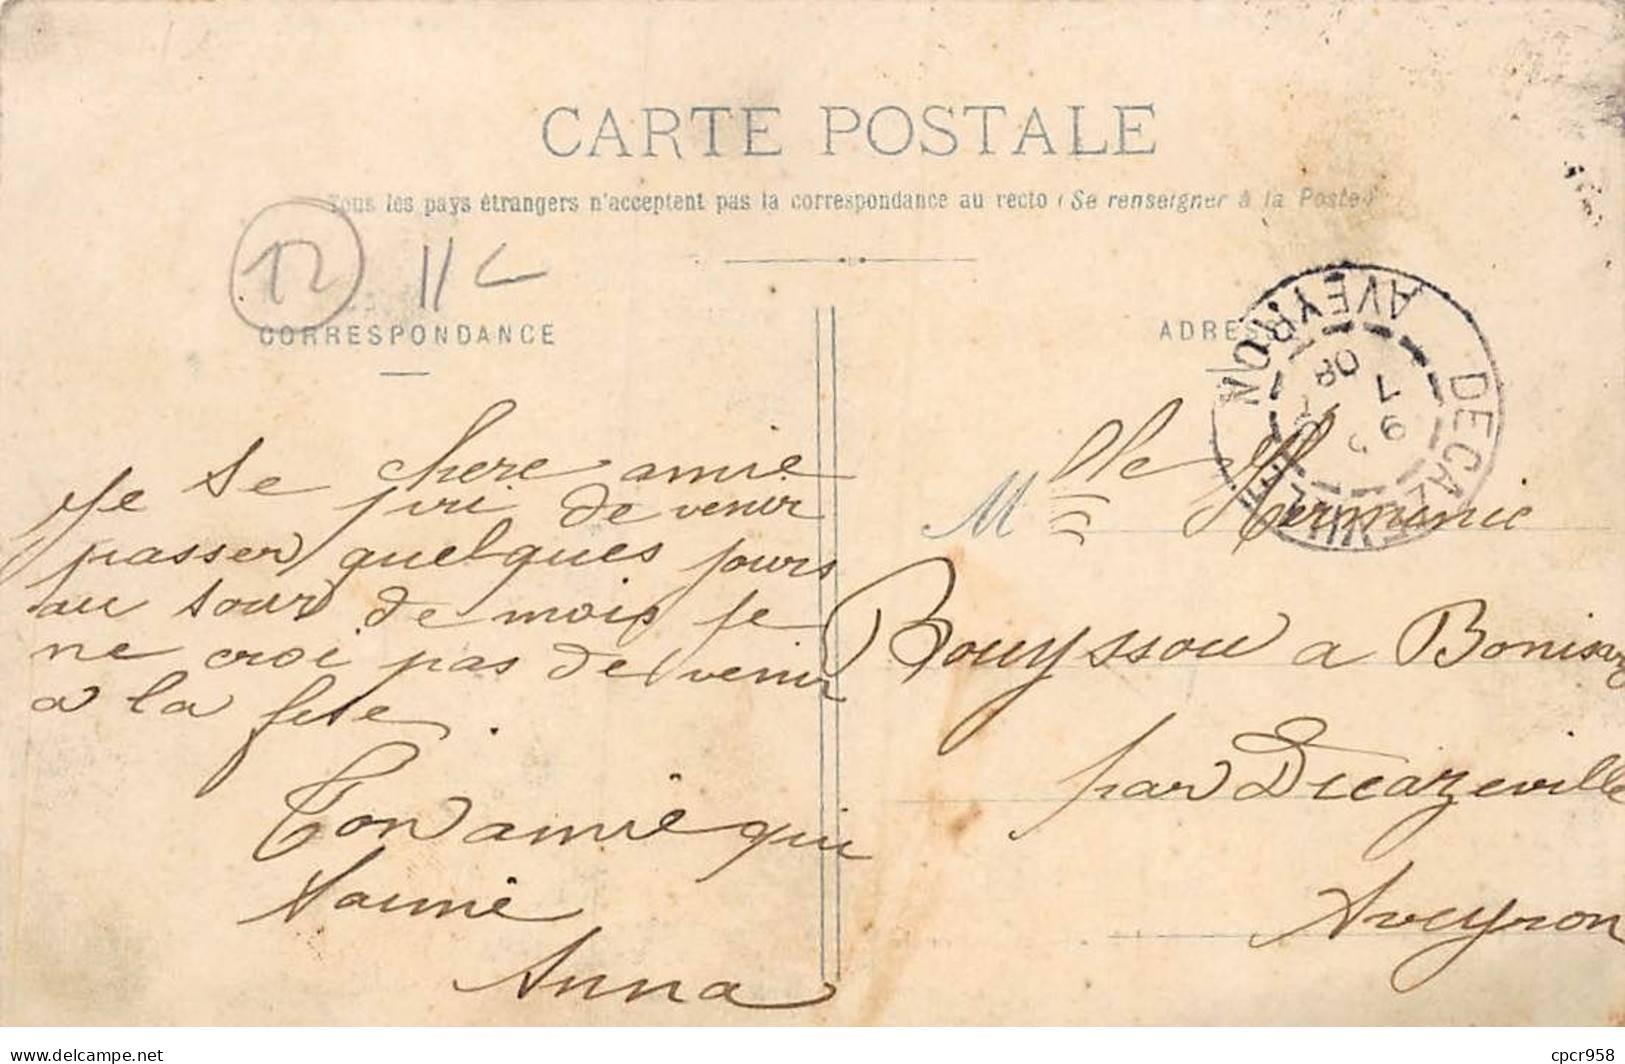 CARTE POSTALE
Tous les pays étrangers n'acceptent pas la correspondance au recto (Se renseigner à la Poste)
12 11
CORRESPONDANCE
ADRESSE
DECAZEVILLE
AVEYRON
9
7
08
chere amie
Je se de venir
passer quelques jours
au de mois je
ne croi pas de venir
a la fete.
Ton amie qui
t'aime
Anna
Mlle Herminie
Bouyssou a
par Decazeville
Aveyron
cpcr958
www.delcampe.net